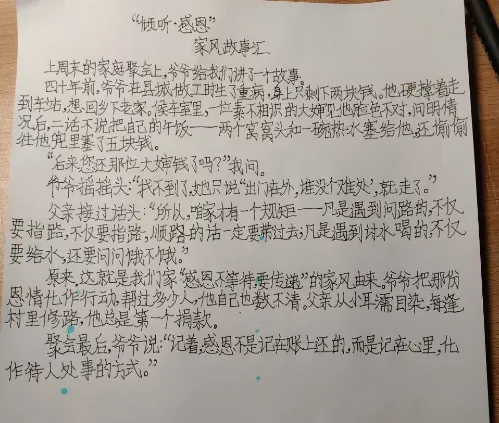 “倾听·感恩”
家风故事汇
上周末的家庭聚会上,爷爷给我们讲了一个故事。
四十年前,爷爷在县城做工时生了重病,身上只剩下两块钱。他硬撑着走
到车站,想回乡下老家。候车室里,一位素不相识的大婶见他脸色不对,问明情
况后,二话不说把自己的午饭——两个窝窝头和一碗热水塞给他,还偷偷
往他兜里塞了五块钱。
“后来您还那位大婶钱了吗?”我问。
爷爷摇摇头:“找不到了,她只说‘出门在外,谁没个难处’,就走了。”
父亲接过话头:“所以,咱家才有一个规矩——凡是遇到问路的,不仅
要指路,不仅要指路,顺路的话一定要带过去;凡是遇到讨水喝的,不仅
要给水,还要问问饿不饿。”
原来,这就是我们家“感恩不等待要传递”的家风由来。爷爷把那份
恩情化作行动,帮过多少人,他自己也数不清。父亲从小耳濡目染,每逢
村里修路,他总是第一个捐款。
聚会最后,爷爷说:“记着,感恩不是记在账上还的,而是记在心里,化
作待人处事的方式。”